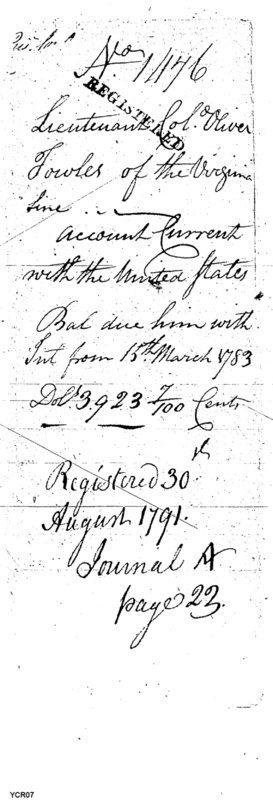 No 1,476
REGISTERED
Lieutenant Col. Oliver
Towles of the Virginia
Line
account Current
with the United States
Bal due him with
Int from 15th March 1783
Dols 3.923 7/100 Cents
Registered 30
August 1791.
Journal A
page 23.
YCR07